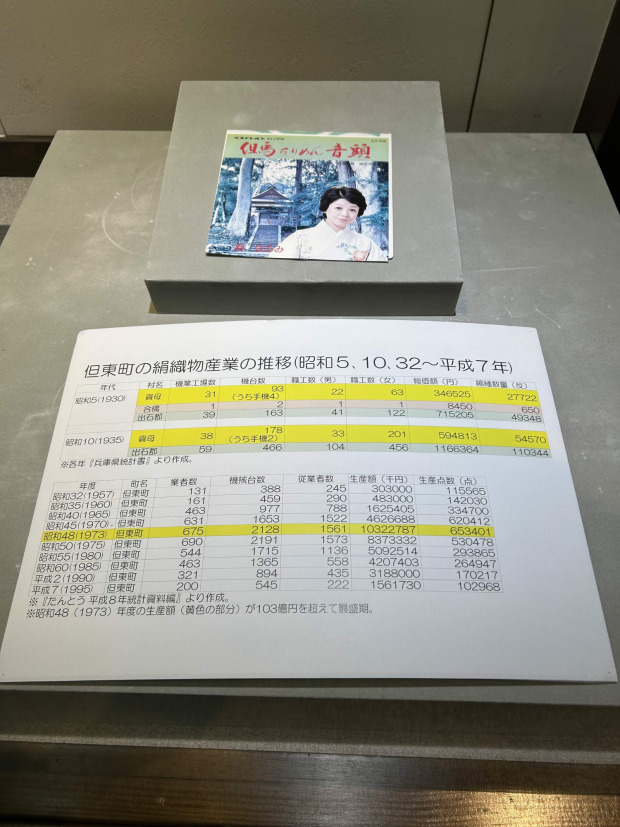 但馬ちりめん音頭
但東町の絹織物産業の推移(昭和5、10、32〜平成7年)
年代 村名 機業工場数 機台数 職工数(男) 職工数(女) 総価額(円) 絹縫数量(反)
昭和5(1930) 資母 31 93(うち手機4) 22 63 346525 27722
合橋 1 2 1 1 8450 650
出石郡 39 163 41 122 715205 49348
昭和10(1935) 資母 38 178(うち手機2) 33 201 594813 54570
出石郡 59 466 104 456 1166364 110344
※各年『兵庫県統計書』より作成。
年度 町名 業者数 機械台数 従業者数 生産額(千円) 生産点数(点)
昭和32(1957) 但東町 131 388 245 303000 115565
昭和35(1960) 但東町 161 459 290 483000 142030
昭和40(1965) 但東町 463 977 788 1625405 334700
昭和45(1970) 但東町 631 1653 1522 4626688 620412
昭和48(1973) 但東町 675 2128 1561 10322787 653401
昭和50(1975) 但東町 690 2191 1573 8373332 530478
昭和55(1980) 但東町 544 1715 1136 5092514 293865
昭和60(1985) 但東町 463 1365 558 4207403 264947
平成2(1990) 但東町 321 894 435 3188000 170217
平成7(1995) 但東町 200 545 222 1561730 102968
※『たんとう 平成8年統計資料編』より作成。
※昭和48(1973)年度の生産額(黄色の部分)が103億円を超えて最盛期。